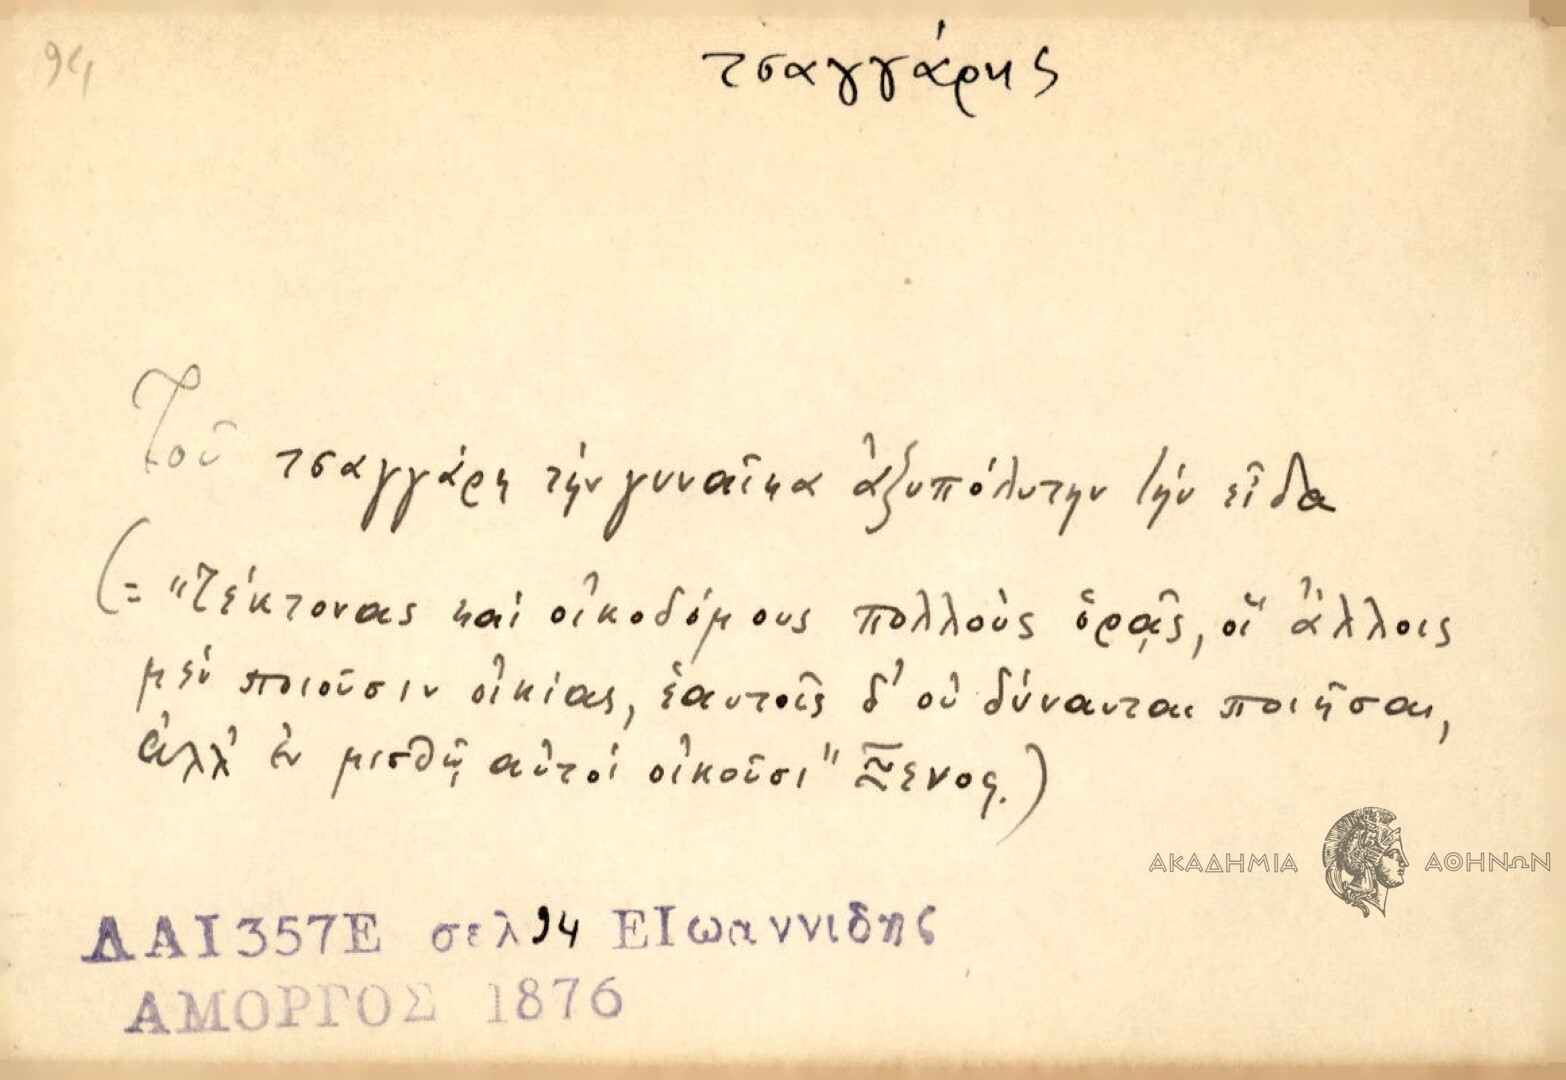 94
τσαγγάρης
Τοῦ τσαγγάρη τὴν γυναῖκα ἀξυπόλυτην τὴν εἶδα
(= "Τέκτονας καὶ οἰκοδόμους πολλοὺς ὁρᾷς, οἳ ἄλλοις
μὲν ποιοῦσιν οἰκίας, ἑαυτοῖς δ' οὐ δύνανται ποιῆσαι,
ἀλλ' ἐν μισθῷ αὐτοὶ οἰκοῦσι" Ξενοφ.)
ΑΚΑΔΗΜΙΑ ΑΘΗΝΩΝ
ΔΑΙ357Ε σελ 94 ΕΙωαννιδης
ΑΜΟΡΓΟΣ 1876